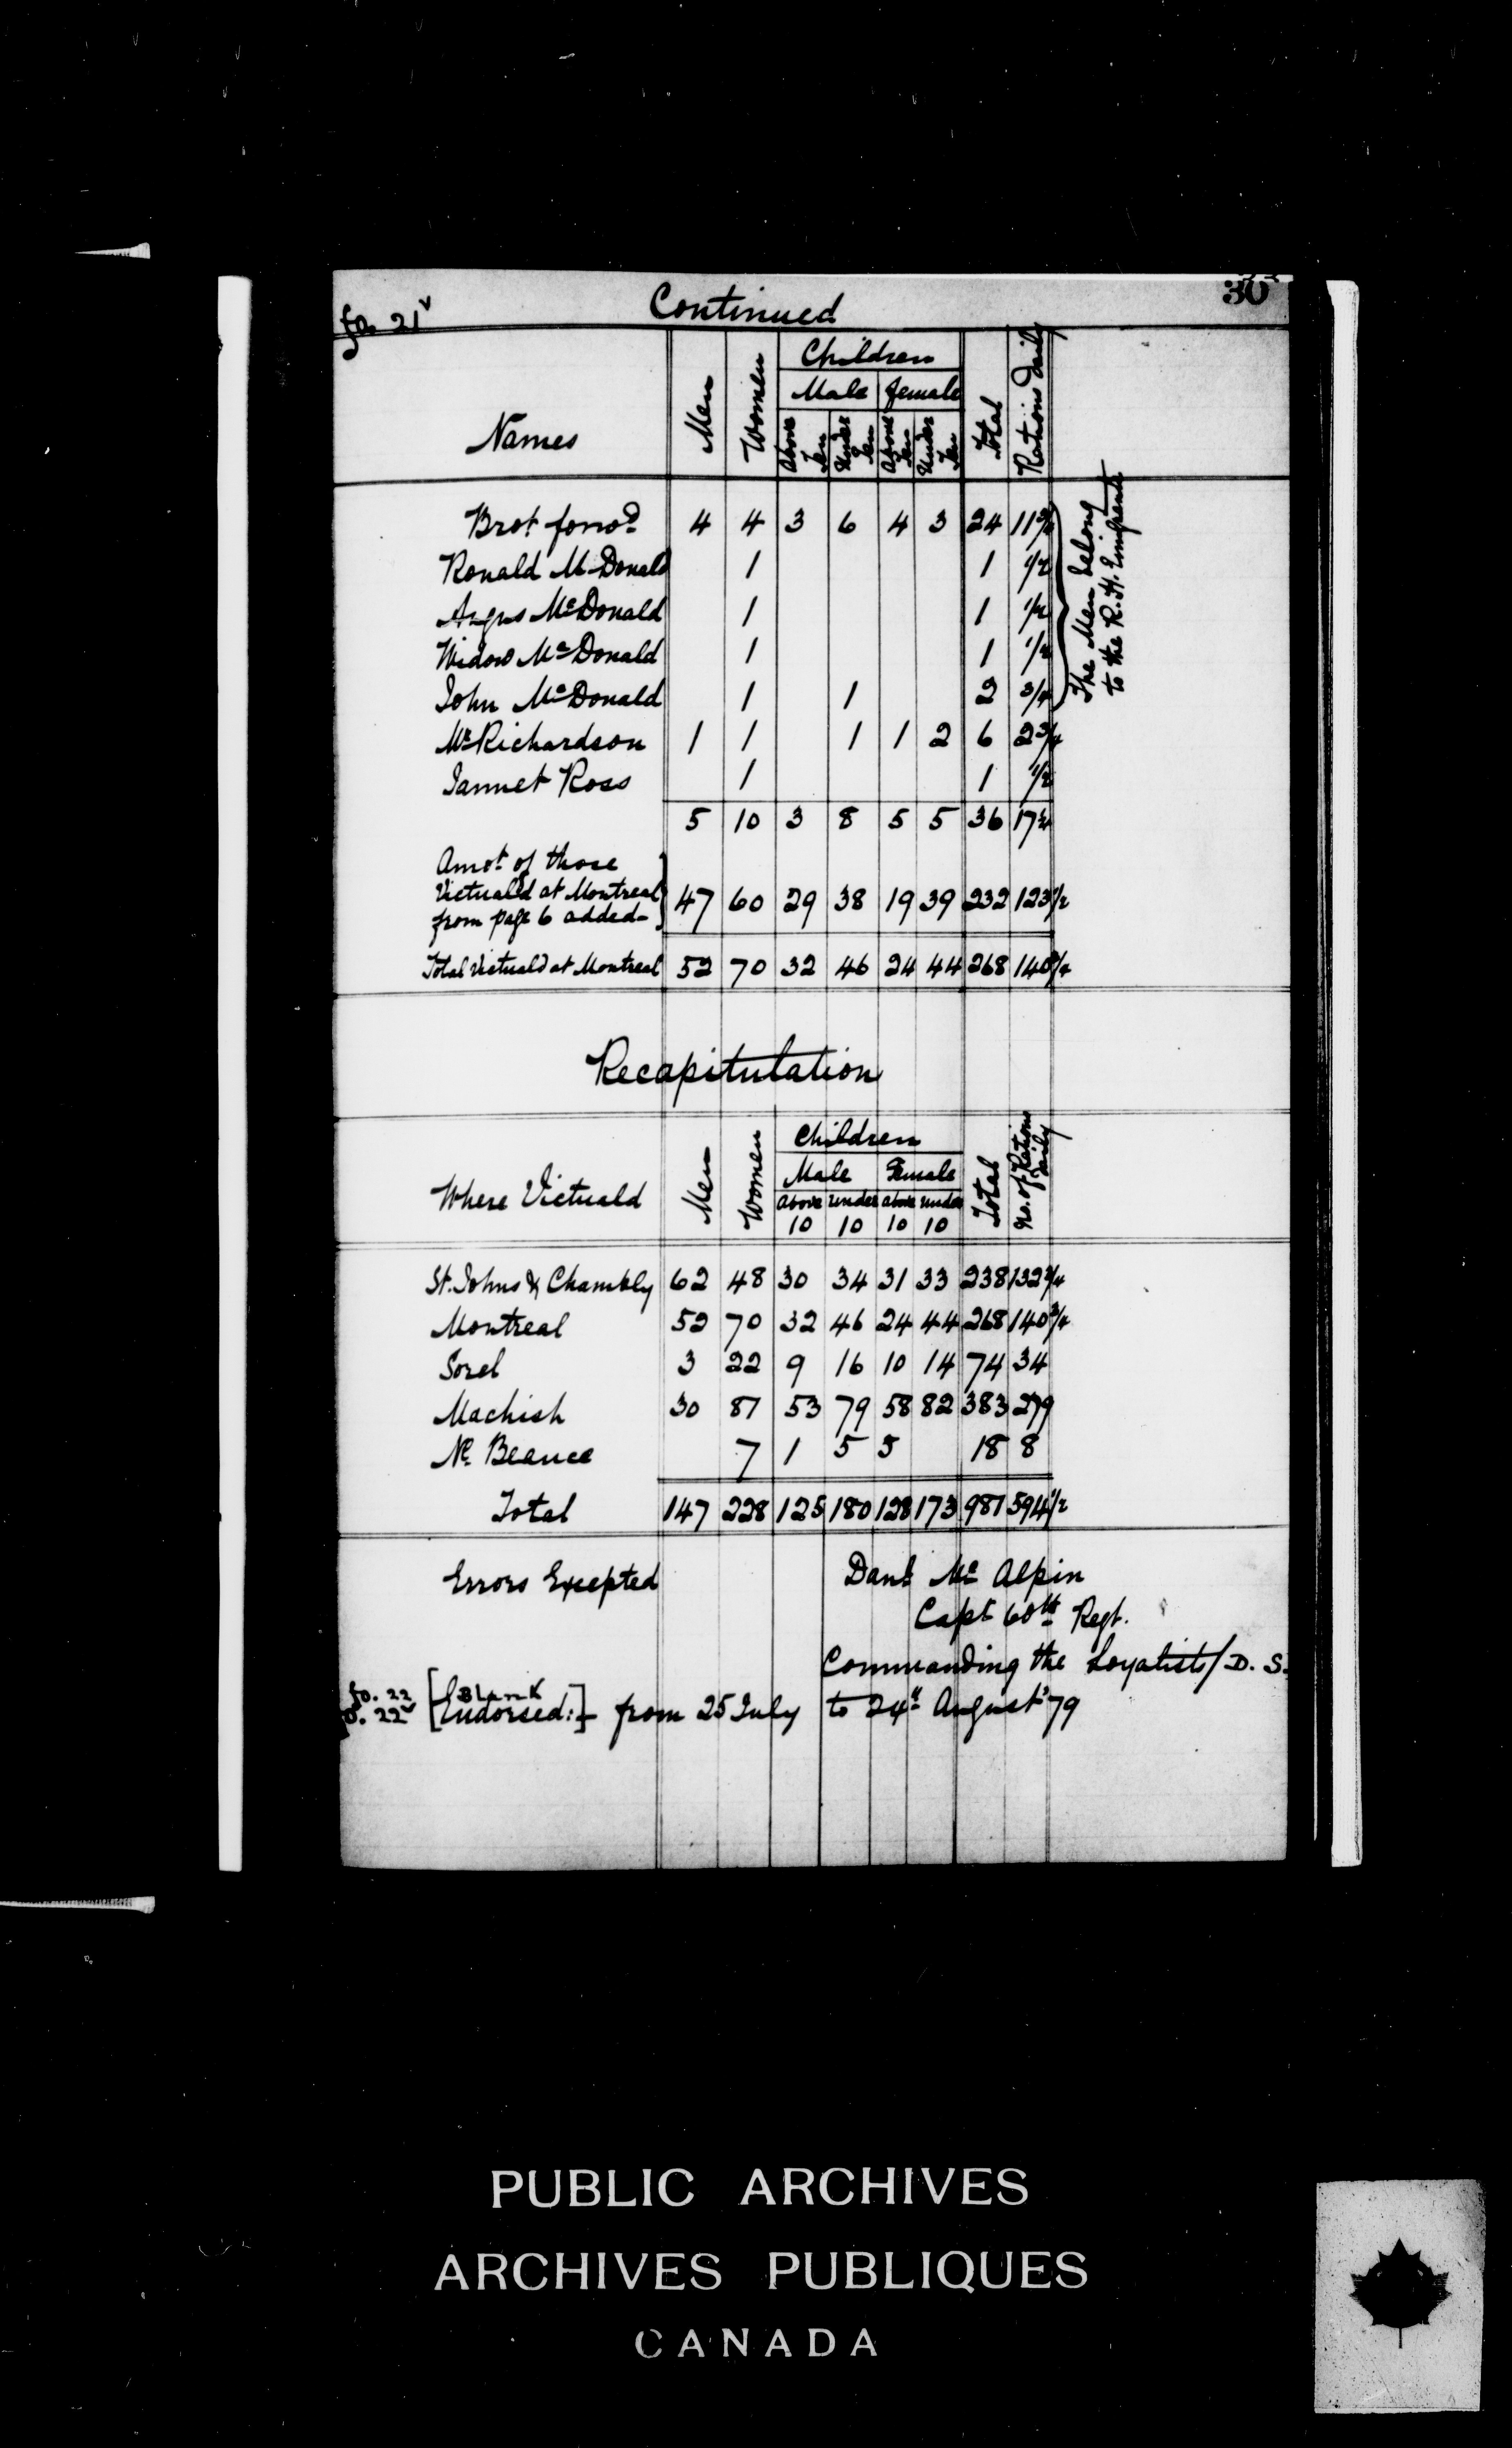 fo. 21v
Continued
30
Names
Men
Women
Children
Male
female
above Ten
Under Ten
above Ten
Under Ten
Total
Rations Daily
Brot forwd 4 4 3 6 4 3 24 11 3/4
Ronald McDonald 1 1 1/2
Angus McDonald 1 1 1/2
Widow McDonald 1 1 1/2
John McDonald 1 1 2 3/4
The Men belong
to the R. H. Emigrants
Mr Richardson 1 1 1 1 2 6 2 3/4
Jannet Ross 1 1 1/2
5 10 3 8 5 5 36 17 1/4
Amot of those
Victuald at Montreal
from page 6 added 47 60 29 38 19 39 232 123 1/2
Total Victuald at Montreal 52 70 32 46 24 44 268 140 3/4
Recapitulation
Where Victuald
Men
Women
Children
Male
Female
above 10
under 10
above 10
under 10
Total
No. of Rations daily
St. Johns & Chambly 62 48 30 34 31 33 238 132 3/4
Montreal 52 70 32 46 24 44 268 140 3/4
Sorel 3 22 9 16 10 14 74 34
Machish 30 81 53 79 58 82 383 279
Ne Beauce 7 1 5 5 18 8
Total 147 228 125 180 128 173 981 594 1/2
Errors Excepted
Danl Mc Alpin
Capt 60th Regt.
Commanding the Loyalists / D. S.
fo. 22 [Blank
fo. 22v Endorsed:] from 25 July to 24th August '79
PUBLIC ARCHIVES
ARCHIVES PUBLIQUES
CANADA